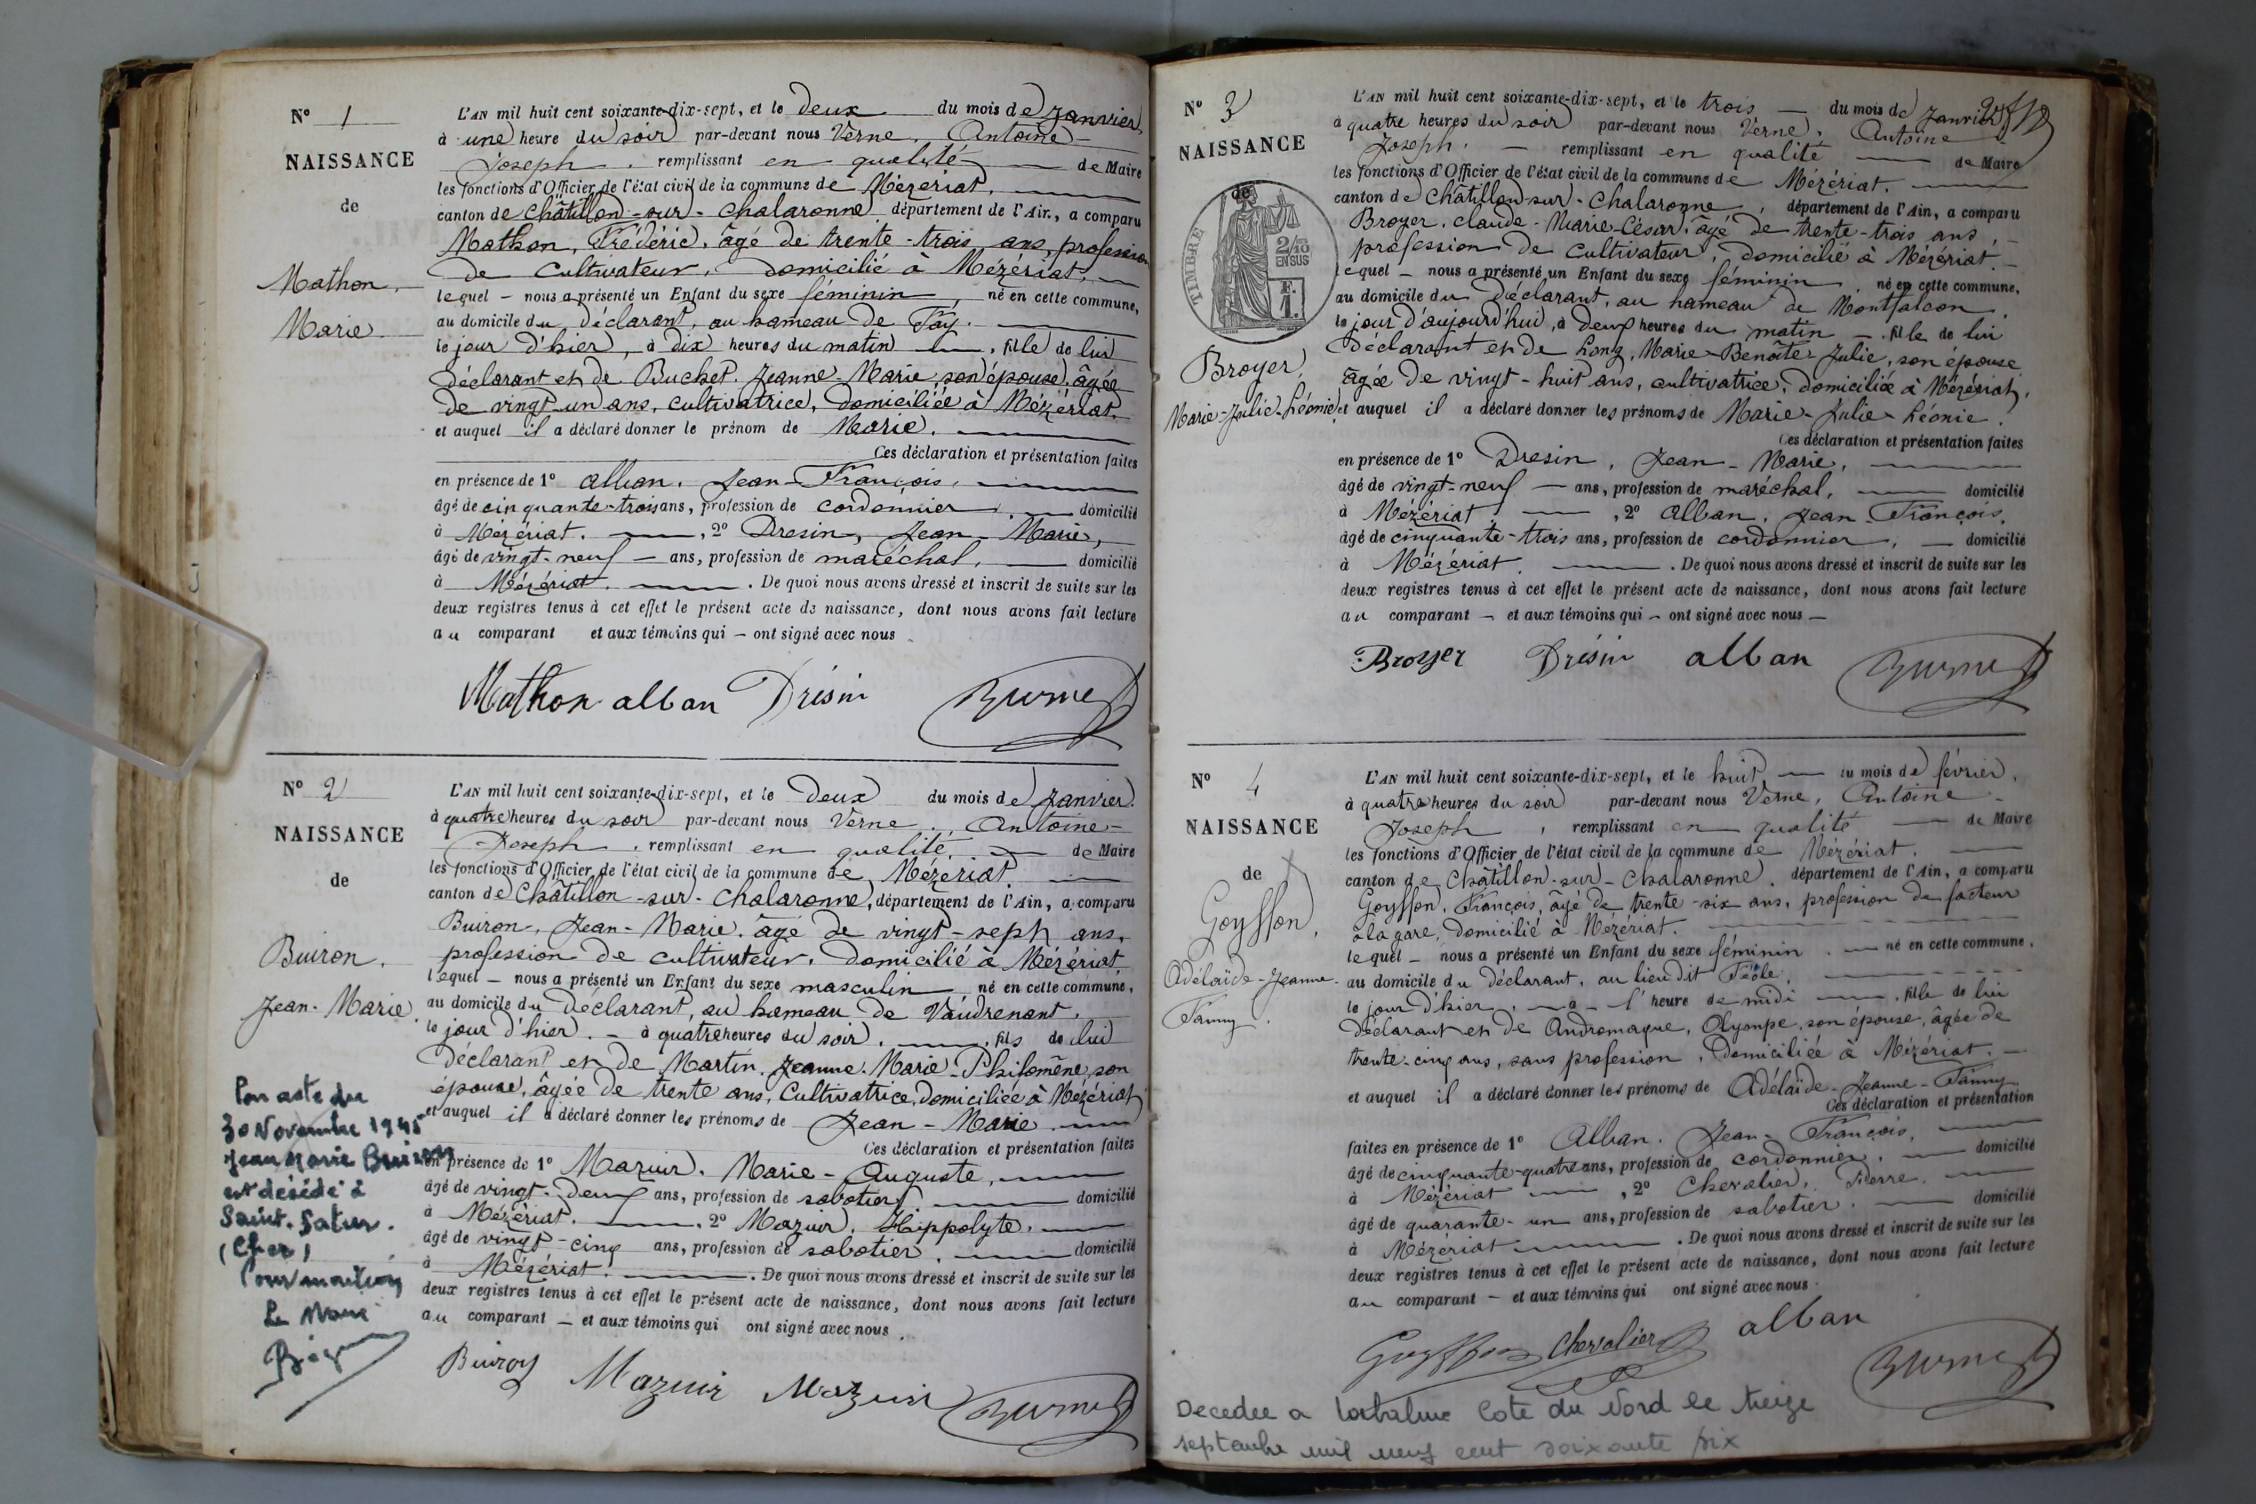 N° 1
NAISSANCE
de
Mathon,
Marie
L'AN mil huit cent soixante-dix-sept, et le deux du mois de Janvier,
à une heure du soir par-devant nous Verne, Antoine-
Joseph, remplissant en qualité de Maire
les fonctions d'Officier de l'état civil de la commune de Mézériat,
canton de Châtillon-sur-Chalaronne, département de l'Ain, a comparu
Mathon, Frédéric, âgé de trente-trois ans, profession
de Cultivateur, domicilié à Mézériat,
lequel - nous a présenté un Enfant du sexe féminin, né en cette commune,
au domicile du déclarant, au hameau de Fay.
le jour d'hier, à dix heures du matin, fille de lui
déclarant et de Buchet, Jeanne-Marie, son épouse, âgée
de vingt-un ans, cultivatrice, domiciliée à Mézériat,
et auquel il a déclaré donner le prénom de Marie.
Ces déclaration et présentation faites
en présence de 1° Alban, Jean-François,
âgé de cinquante-trois ans, profession de cordonnier, domicilié
à Mézériat, 2° Dresin, Jean-Marie,
âgé de vingt-neuf ans, profession de maréchal, domicilié
à Mézériat. De quoi nous avons dressé et inscrit de suite sur les
deux registres tenus à cet effet le présent acte de naissance, dont nous avons fait lecture
au comparant et aux témoins qui - ont signé avec nous
Mathon alban Drésin
N° 2
NAISSANCE
de
Buiron,
Jean-Marie
L'AN mil huit cent soixante-dix-sept, et le deux du mois de Janvier.
à quatre heures du soir par-devant nous Verne, Antoine-
Joseph, remplissant en qualité de Maire
les fonctions d'Officier de l'état civil de la commune de Mézériat,
canton de Châtillon-sur-Chalaronne, département de l'Ain, a comparu
Buiron, Jean-Marie, âgé de vingt-sept ans,
profession de cultivateur, domicilié à Mézériat,
lequel - nous a présenté un Enfant du sexe masculin né en cette commune,
au domicile du déclarant, au hameau de Vaudrenant,
le jour d'hier, - à quatre heures du soir, fils de lui
déclarant et de Martin, Jeanne-Marie-Philomène, son
épouse, âgée de trente ans, Cultivatrice, domiciliée à Mézériat,
et auquel il a déclaré donner les prénoms de Jean-Marie.
Ces déclaration et présentation faites
en présence de 1° Mazuir, Marie-Auguste,
âgé de vingt-deux ans, profession de sabotier, domicilié
à Mézériat. 2° Mazuir, Hippolyte,
âgé de vingt-cinq ans, profession de sabotier, domicilié
à Mézériat. De quoi nous avons dressé et inscrit de suite sur les
deux registres tenus à cet effet le présent acte de naissance, dont nous avons fait lecture
au comparant - et aux témoins qui ont signé avec nous.
Buiron Mazuir Mazuir
Par acte du
30 Novembre 1945
Jean Marie Buiron
est décédé à
Saint-Satur.
(Cher)
Pour mention
Le Maire
N° 3
NAISSANCE
de
TIMBRE
2/10
EN SUS
F.
1.
Broyer,
Marie-Julie-Léonie,
L'AN mil huit cent soixante-dix-sept, et le trois du mois de Janvier
à quatre heures du soir par-devant nous Verne, Antoine
Joseph, - remplissant en qualité de Maire
les fonctions d'Officier de l'état civil de la commune de Mézériat.
canton de Châtillon-sur-Chalaronne, département de l'Ain, a comparu
Broyer, Claude-Marie-César, âgé de trente-trois ans,
profession de cultivateur, domicilié à Mézériat.
lequel - nous a présenté un Enfant du sexe féminin, né en cette commune,
au domicile du déclarant, au hameau de Montfalcon,
le jour d'aujourd'hui, à deux heures du matin - fille de lui
déclarant et de Long, Marie-Benoîte-Julie, son épouse
âgée de vingt-huit ans, cultivatrice, domiciliée à Mézériat,
et auquel il a déclaré donner les prénoms de Marie-Julie-Léonie.
Ces déclaration et présentation faites
en présence de 1° Dresin, Jean-Marie,
âgé de vingt-neuf ans, profession de maréchal, domicilié
à Mézériat, 2° Alban, Jean-François,
âgé de cinquante-trois ans, profession de cordonnier, domicilié
à Mézériat. De quoi nous avons dressé et inscrit de suite sur les
deux registres tenus à cet effet le présent acte de naissance, dont nous avons fait lecture
au comparant - et aux témoins qui - ont signé avec nous -
Broyer Drésin alban
N° 4
NAISSANCE
de
Goyffon,
Adélaïde-Jeanne-
Fanny.
L'AN mil huit cent soixante-dix-sept, et le huit du mois de février,
à quatre heures du soir par-devant nous Verne, Antoine-
Joseph, remplissant en qualité de Maire
les fonctions d'Officier de l'état civil de la commune de Mézériat,
canton de Châtillon-sur-Chalaronne, département de l'Ain, a comparu
Goyffon, François, âgé de trente-six ans, profession de facteur
à la gare, domicilié à Mézériat.
lequel - nous a présenté un Enfant du sexe féminin. - né en cette commune,
au domicile du déclarant, au lieu dit
le jour d'hier, - à - l'heure de midi, fille de lui
déclarant et de Andromaque, Olympe, son épouse, âgée de
trente-cinq ans, sans profession, domiciliée à Mézériat.
et auquel il a déclaré donner les prénoms de Adélaïde-Jeanne-Fanny
Ces déclaration et présentation
faites en présence de 1° Alban, Jean-François,
âgé de cinquante-quatre ans, profession de cordonnier, domicilié
à Mézériat, 2° Chevalier, Pierre,
âgé de quarante-un ans, profession de sabotier, domicilié
à Mézériat. De quoi nous avons dressé et inscrit de suite sur les
deux registres tenus à cet effet le présent acte de naissance, dont nous avons fait lecture
au comparant - et aux témoins qui ont signé avec nous.
Goyffon Chevalier alban
Decedee a Cote du Nord le treize
septembre mil neuf cent soixante six